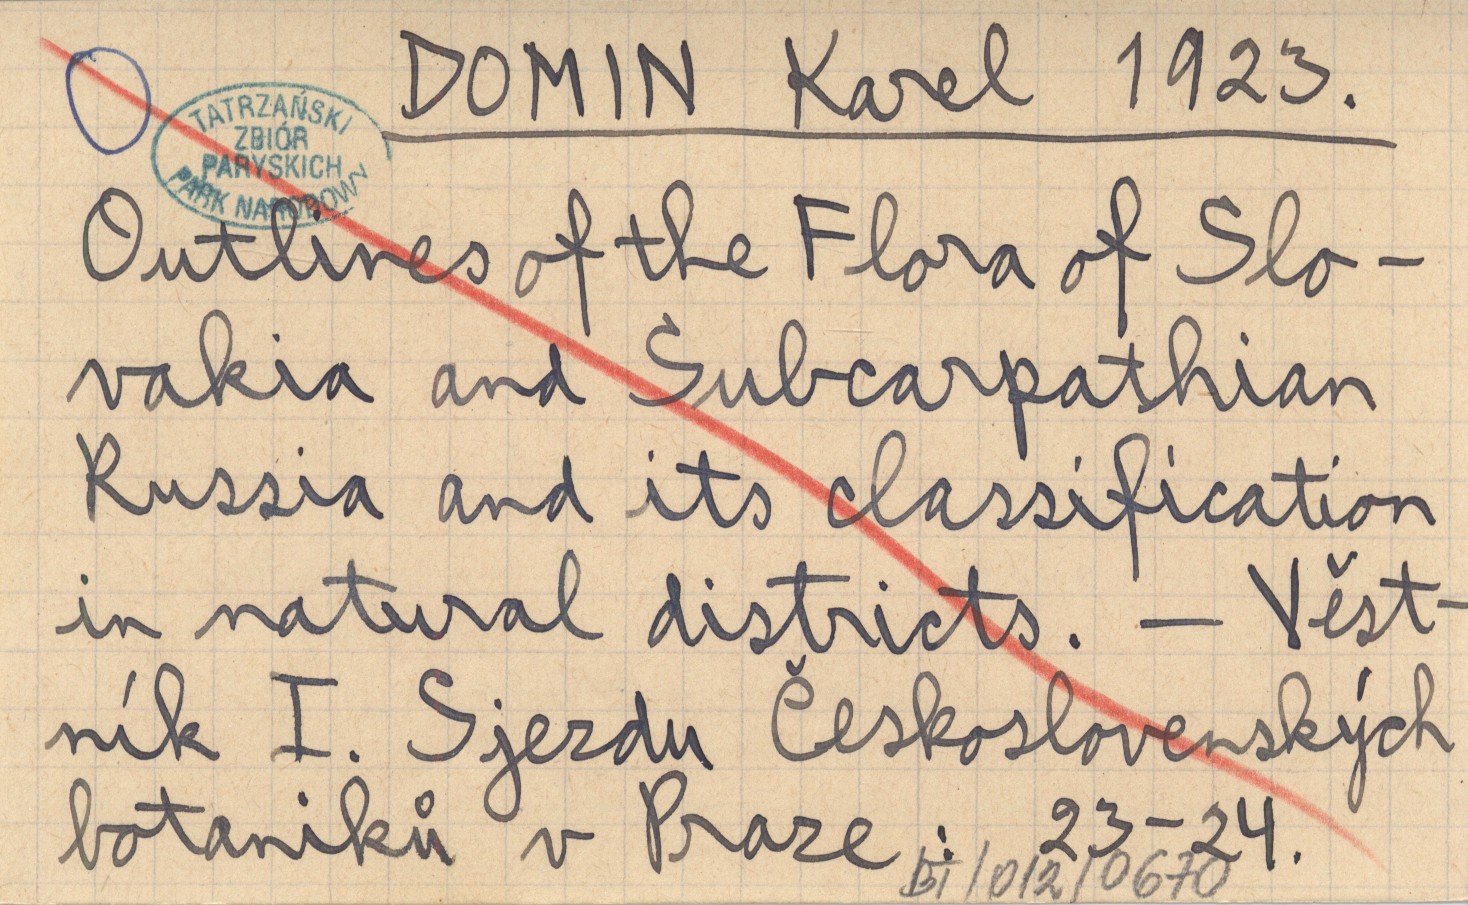 DOMIN Karel 1923.
TATRZAŃSKI
ZBIÓR
PARYSKICH
PARK NARODOWY
Outlines of the Flora of Slo-
vakia and Subcarpathian
Russia and its classification
in natural districts. — Věst-
ník I. Sjezdu Československých
botaniků v Praze: 23-24.
BT/012/0670